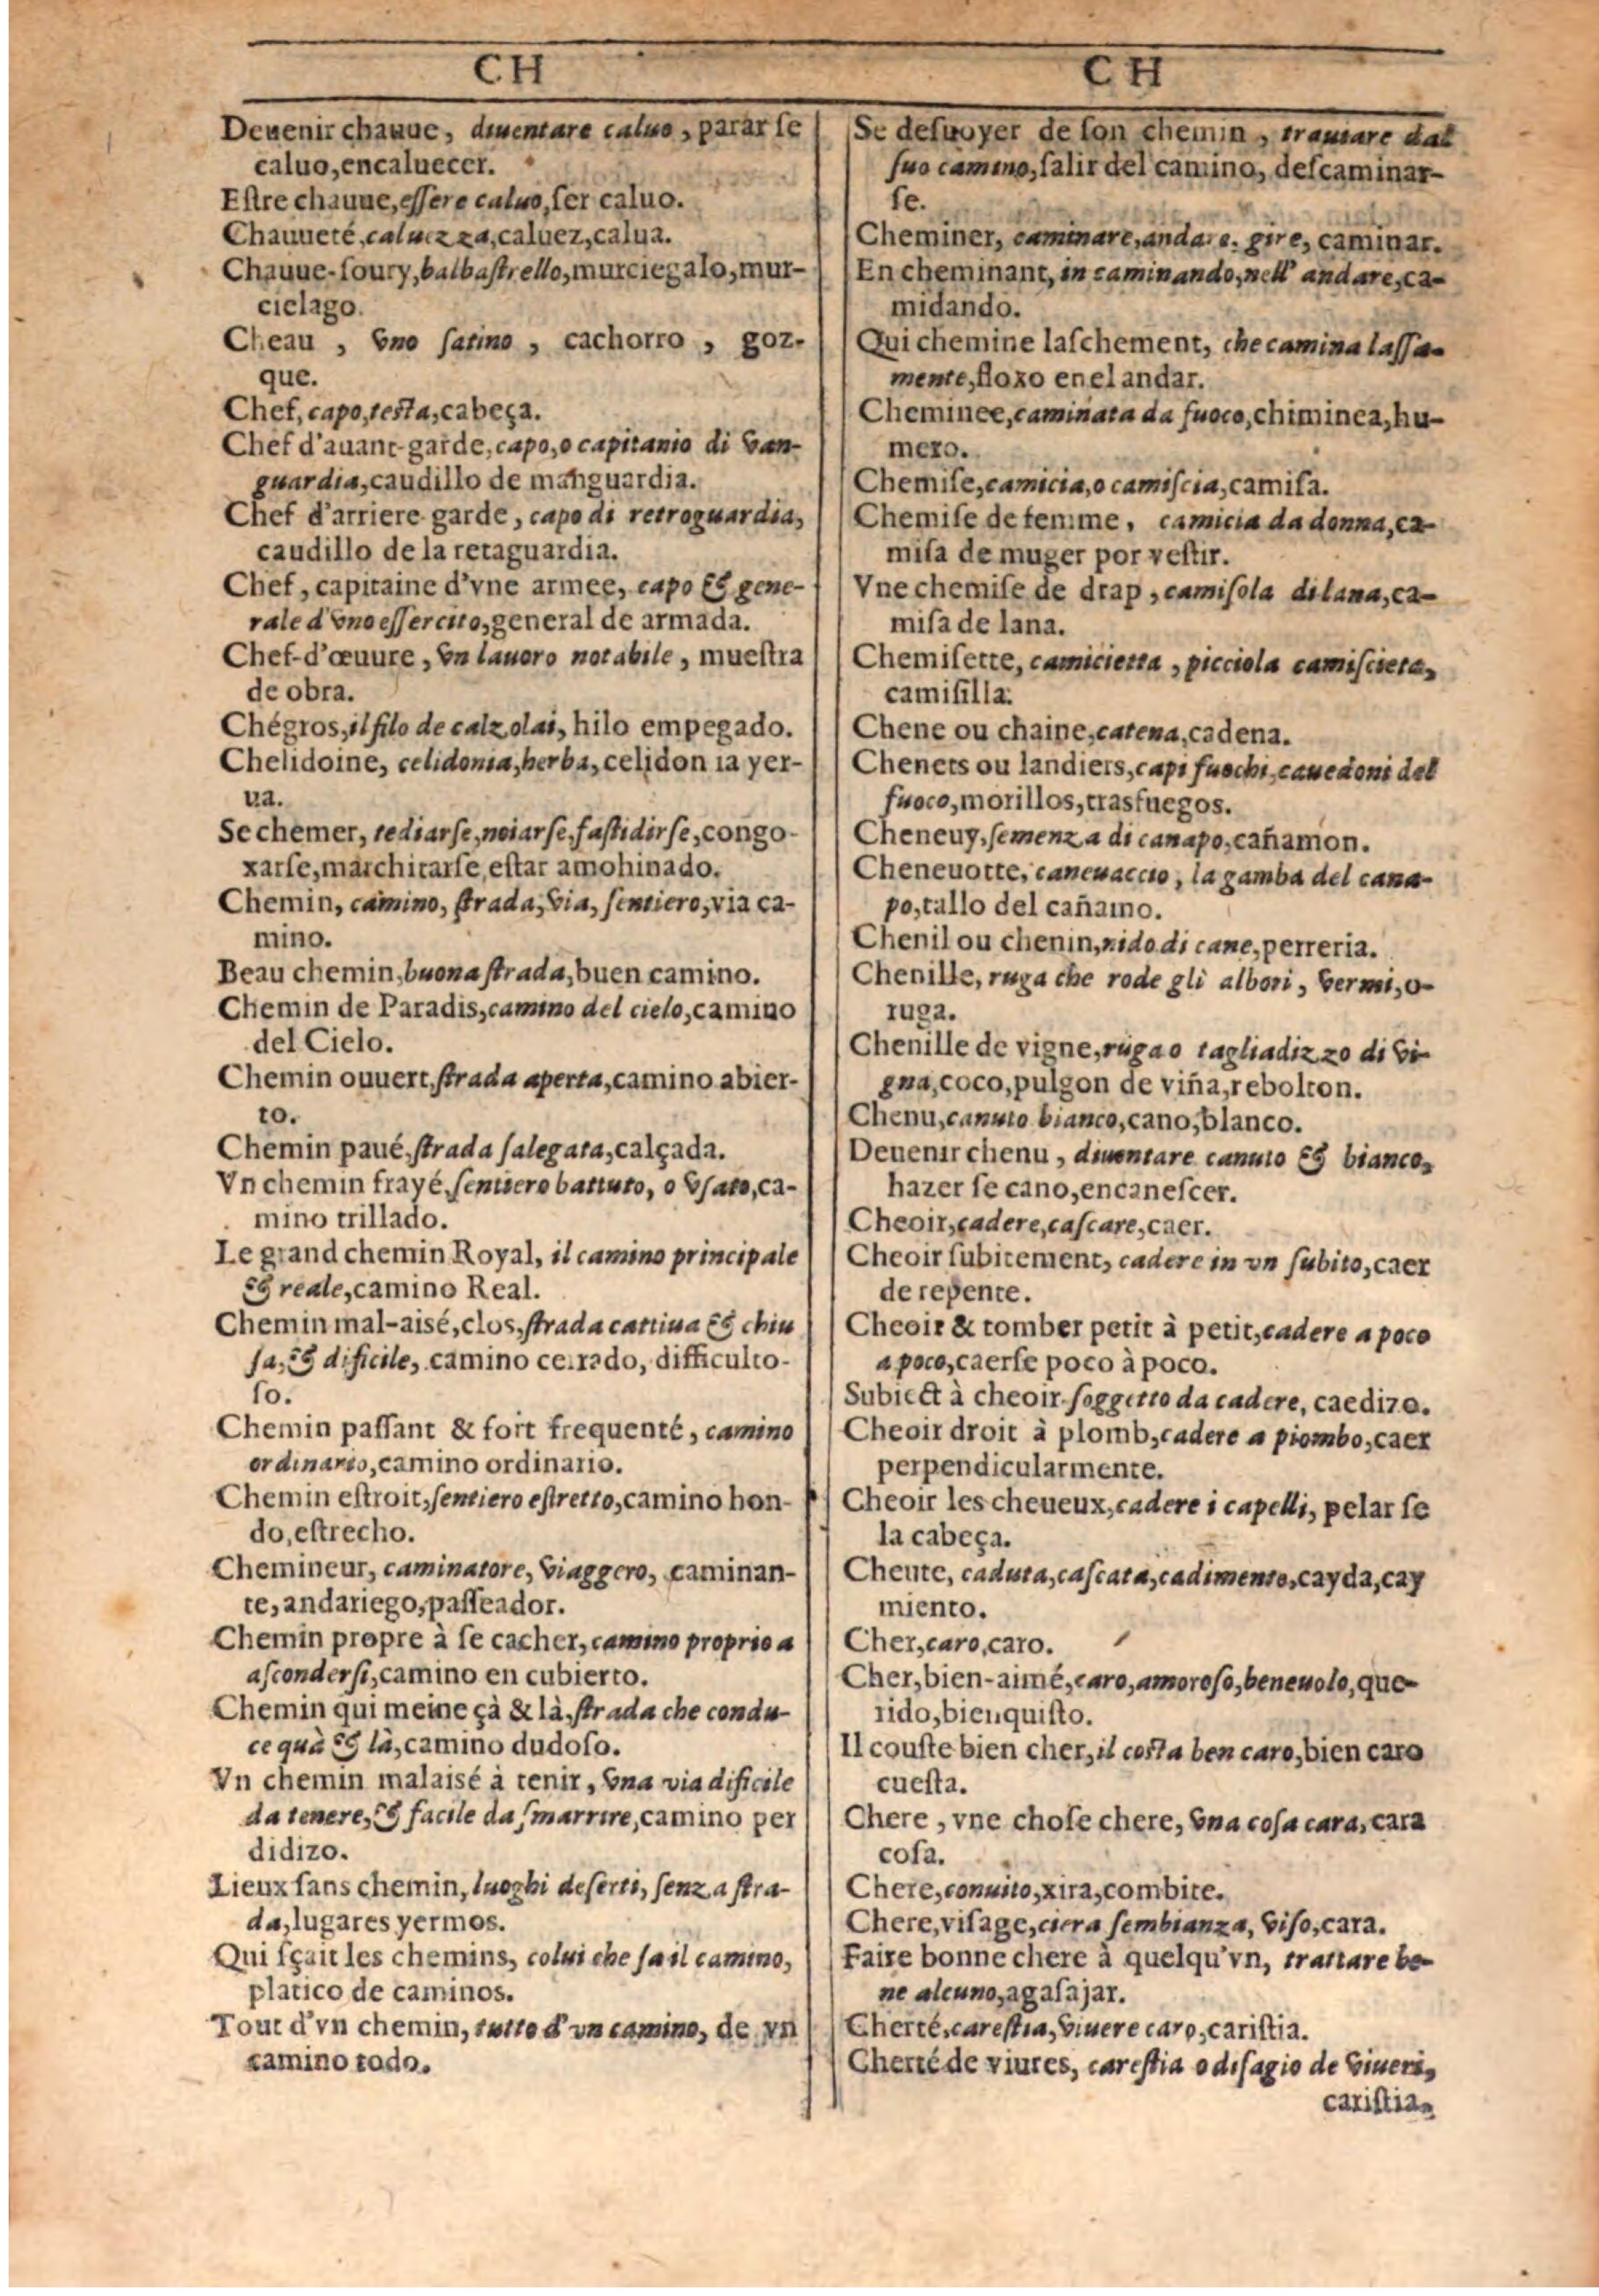 CH
Deuenir chauue, diuentare caluo, parar se
caluo,encaluecer.
Estre chauue,essere caluo,ser caluo.
Chauueté,caluezza,caluez,calua.
Chauue-soury,balbastrello,murciegalo,mur-
cielago.
Cheau , vno satino , cachorro , goz-
que.
Chef,capo,testa,cabeça.
Chef d'auant-garde,capo,o capitanio di van-
guardia,caudillo de manguardia.
Chef d'arriere garde, capo di retroguardia,
caudillo de la retaguardia.
Chef, capitaine d'vne armee, capo & gene-
rale d'vno essercito,general de armada.
Chef-d'œuure, vn lauoro notabile, muestra
de obra.
Chégros,il filo de calzolai, hilo empegado.
Chelidoine, celidonia,herba,celidon ia yer-
ua.
Se chemer, tediarse,noiarse,fastidirse,congo-
xarse,marchitarse,estar amohinado.
Chemin, camino, strada,via, sentiero,via ca-
mino.
Beau chemin,buona strada,buen camino.
Chemin de Paradis,camino del cielo,camino
del Cielo.
Chemin ouuert,strada aperta,camino abier-
to.
Chemin paué,strada salegata,calçada.
Vn chemin frayé,sentiero battuto, o vsato,ca-
mino trillado.
Le grand chemin Royal, il camino principale
& reale,camino Real.
Chemin mal-aisé,clos,strada cattiua & chiu
sa,& dificile, camino cerrado, difficulto-
so.
Chemin passant & fort frequenté, camino
ordinario,camino ordinario.
Chemin estroit,sentiero estretto,camino hon-
do,estrecho.
Chemineur, caminatore, viaggero, caminan-
te,andariego,passeador.
Chemin propre à se cacher,camino proprio a
ascondersi,camino en cubierto.
Chemin qui meine çà & là,strada che condu-
ce quà & là,camino dudoso.
Vn chemin malaisé à tenir, vna via dificile
da tenere,& facile da smarrire,camino per
didizo.
Lieux sans chemin, luoghi deserti, senza stra-
da,lugares yermos.
Qui sçait les chemins, colui che sa il camino,
platico de caminos.
Tout d'vn chemin, tutto d'vn camino, de vn
camino todo.
CH
Se desuoyer de son chemin, trauiare dal
suo camino,salir del camino, descaminar-
se.
Cheminer, caminare,andare, gire, caminar.
En cheminant, in caminando,nell' andare,ca-
midando.
Qui chemine laschement, che camina lassa-
mente,floxo en el andar.
Cheminee,caminata da fuoco,chiminea,hu-
mero.
Chemise,camicia,o camiscia,camisa.
Chemise de femme, camicia da donna,ca-
misa de muger por vestir.
Vne chemise de drap, camisola di lana,ca-
misa de lana.
Chemisette, camicietta, picciola camiscieta,
camisilla.
Chene ou chaine,catena,cadena.
Chenets ou landiers,capi fuochi,cauedoni del
fuoco,morillos,trasfuegos.
Cheneuy,semenza di canapo,cañamon.
Cheneuotte, caneuaccio, la gamba del cana-
po,tallo del cañamo.
Chenil ou chenin,nido di cane,perreria.
Chenille, ruga che rode gli albori, vermi,o-
ruga.
Chenille de vigne,ruga o tagliadizzo di vi-
gna,coco,pulgon de viña,rebolton.
Chenu,canuto bianco,cano,blanco.
Deuenir chenu, diuentare canuto & bianco,
hazer se cano,encanescer.
Cheoir,cadere,cascare,caer.
Cheoir subitement, cadere in vn subito,caer
de repente.
Cheoir & tomber petit à petit,cadere a poco
a poco,caerse poco à poco.
Subiect à cheoir,soggetto da cadere, caedizo.
Cheoir droit à plomb,cadere a piombo,caer
perpendicularmente.
Cheoir les cheueux,cadere i capelli, pelar se
la cabeça.
Cheute, caduta,cascata,cadimento,cayda,cay
miento.
Cher,caro,caro.
Cher,bien-aimé,caro,amoroso,beneuolo,que-
rido,bienquisto.
Il couste bien cher,il costa ben caro,bien caro
cuesta.
Chere, vne chose chere, vna cosa cara,cara
cosa.
Chere,conuito,xira,combite.
Chere,visage,ciera sembianza, viso,cara.
Faire bonne chere à quelqu'vn, trattare be-
ne alcuno,agasajar.
Cherté,carestia,viuere caro,caristia.
Cherté de viures, carestia o disagio de viueri,
caristia,